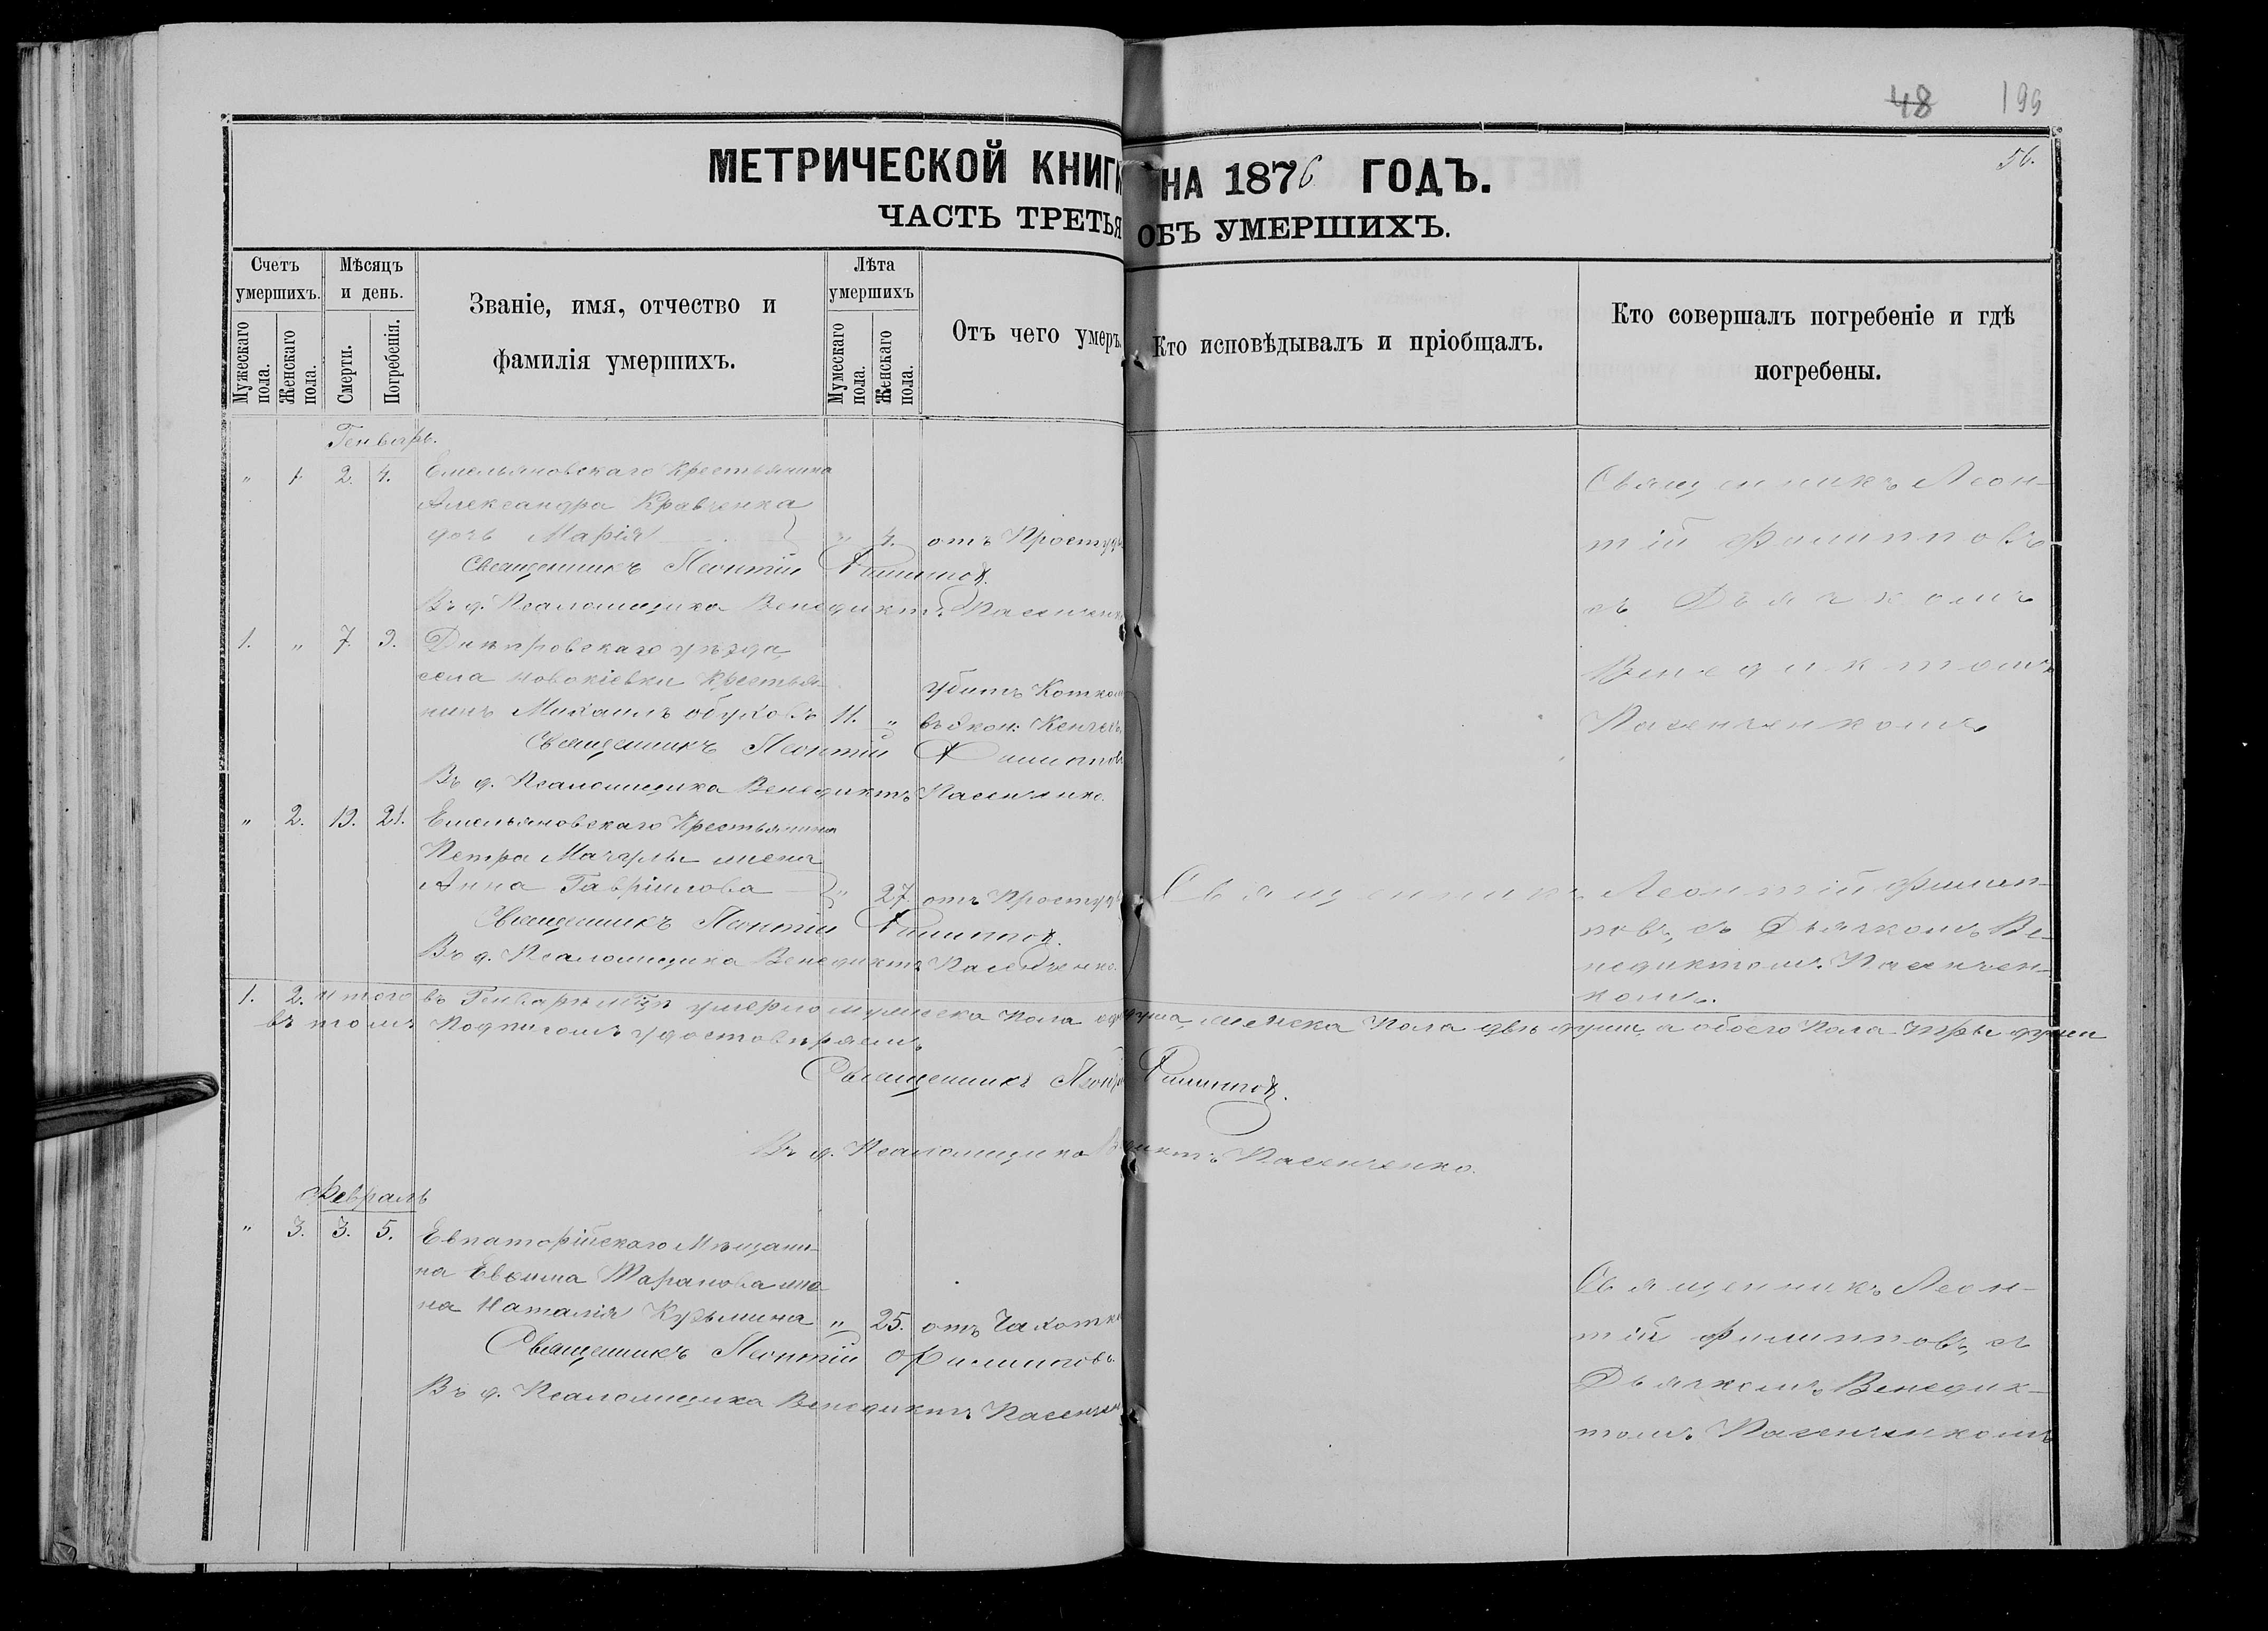 48 199
56.
МЕТРИЧЕСКОЙ КНИГИ НА 1876 ГОДЪ.
ЧАСТЬ ТРЕТЬЯ ОБЪ УМЕРШИХЪ.
Счетъ умершихъ.
Мужескаго пола.
Женскаго пола.
Мѣсяцъ и день.
Смерти.
Погребенія.
Званіе, имя, отчество и
фамилія умершихъ.
Лѣта умершихъ
Мужескаго пола.
Женскаго пола.
Отъ чего умеръ.
Кто исповѣдывалъ и пріобщалъ.
Кто совершалъ погребеніе и гдѣ
погребены.
Генварь.
" 1 2. 4. Емельяновскаго Крестьянина
Александра Кравченка
дочь Марія " 4. отъ Простуды
Священникъ Леонтій Филиппов.
Въ д. Псаломщика Венедиктъ Пасенченко
Священникъ Леон-
тій Филипповъ
съ Дьячкомъ
Венедиктомъ
Пасенченкомъ
1. " 7. 9. Днѣпровскаго уѣзда,
села Новокіевки Крестья-
нинъ Михаилъ Обуховъ 11. " убитъ
въ Экон: Кенчехъ
Священникъ Леонтій Филиппов
Въ д. Псаломщика Венедиктъ Пасенченко.
" 2. 19. 21. Емельяновскаго Крестьянина
Петра жена
Анна Гавріилова " 27. отъ Простуды
Священникъ Леонтій Филиппов.
Въ д. Псаломщика Венедиктъ Пасенченко.
Священникъ Леонтій Филип-
повъ, съ Дьячкомъ Ве-
недиктомъ Пасенчен-
комъ.
1. 2. Итого въ Генварѣ мцѣ умерло мужеска пола одна душа, женска пола двѣ души, а обоего пола три души
въ томъ подписомъ удостовѣряемъ
Священникъ Леонтій Филиппов.
Въ д. Псаломщика Венедиктъ Пасенченко.
Февраль
" 3. 3. 5. Евпаторійскаго Мѣщани-
на Евѳима Тарапова же-
на Наталія Кузьмина " 25. отъ Чахотки
Священникъ Леонтій Филипповъ.
Въ д. Псаломщика Венедиктъ Пасенченко
Священникъ Леон-
тій Филипповъ, съ
Дьячкомъ Венедик-
томъ Пасенченкомъ